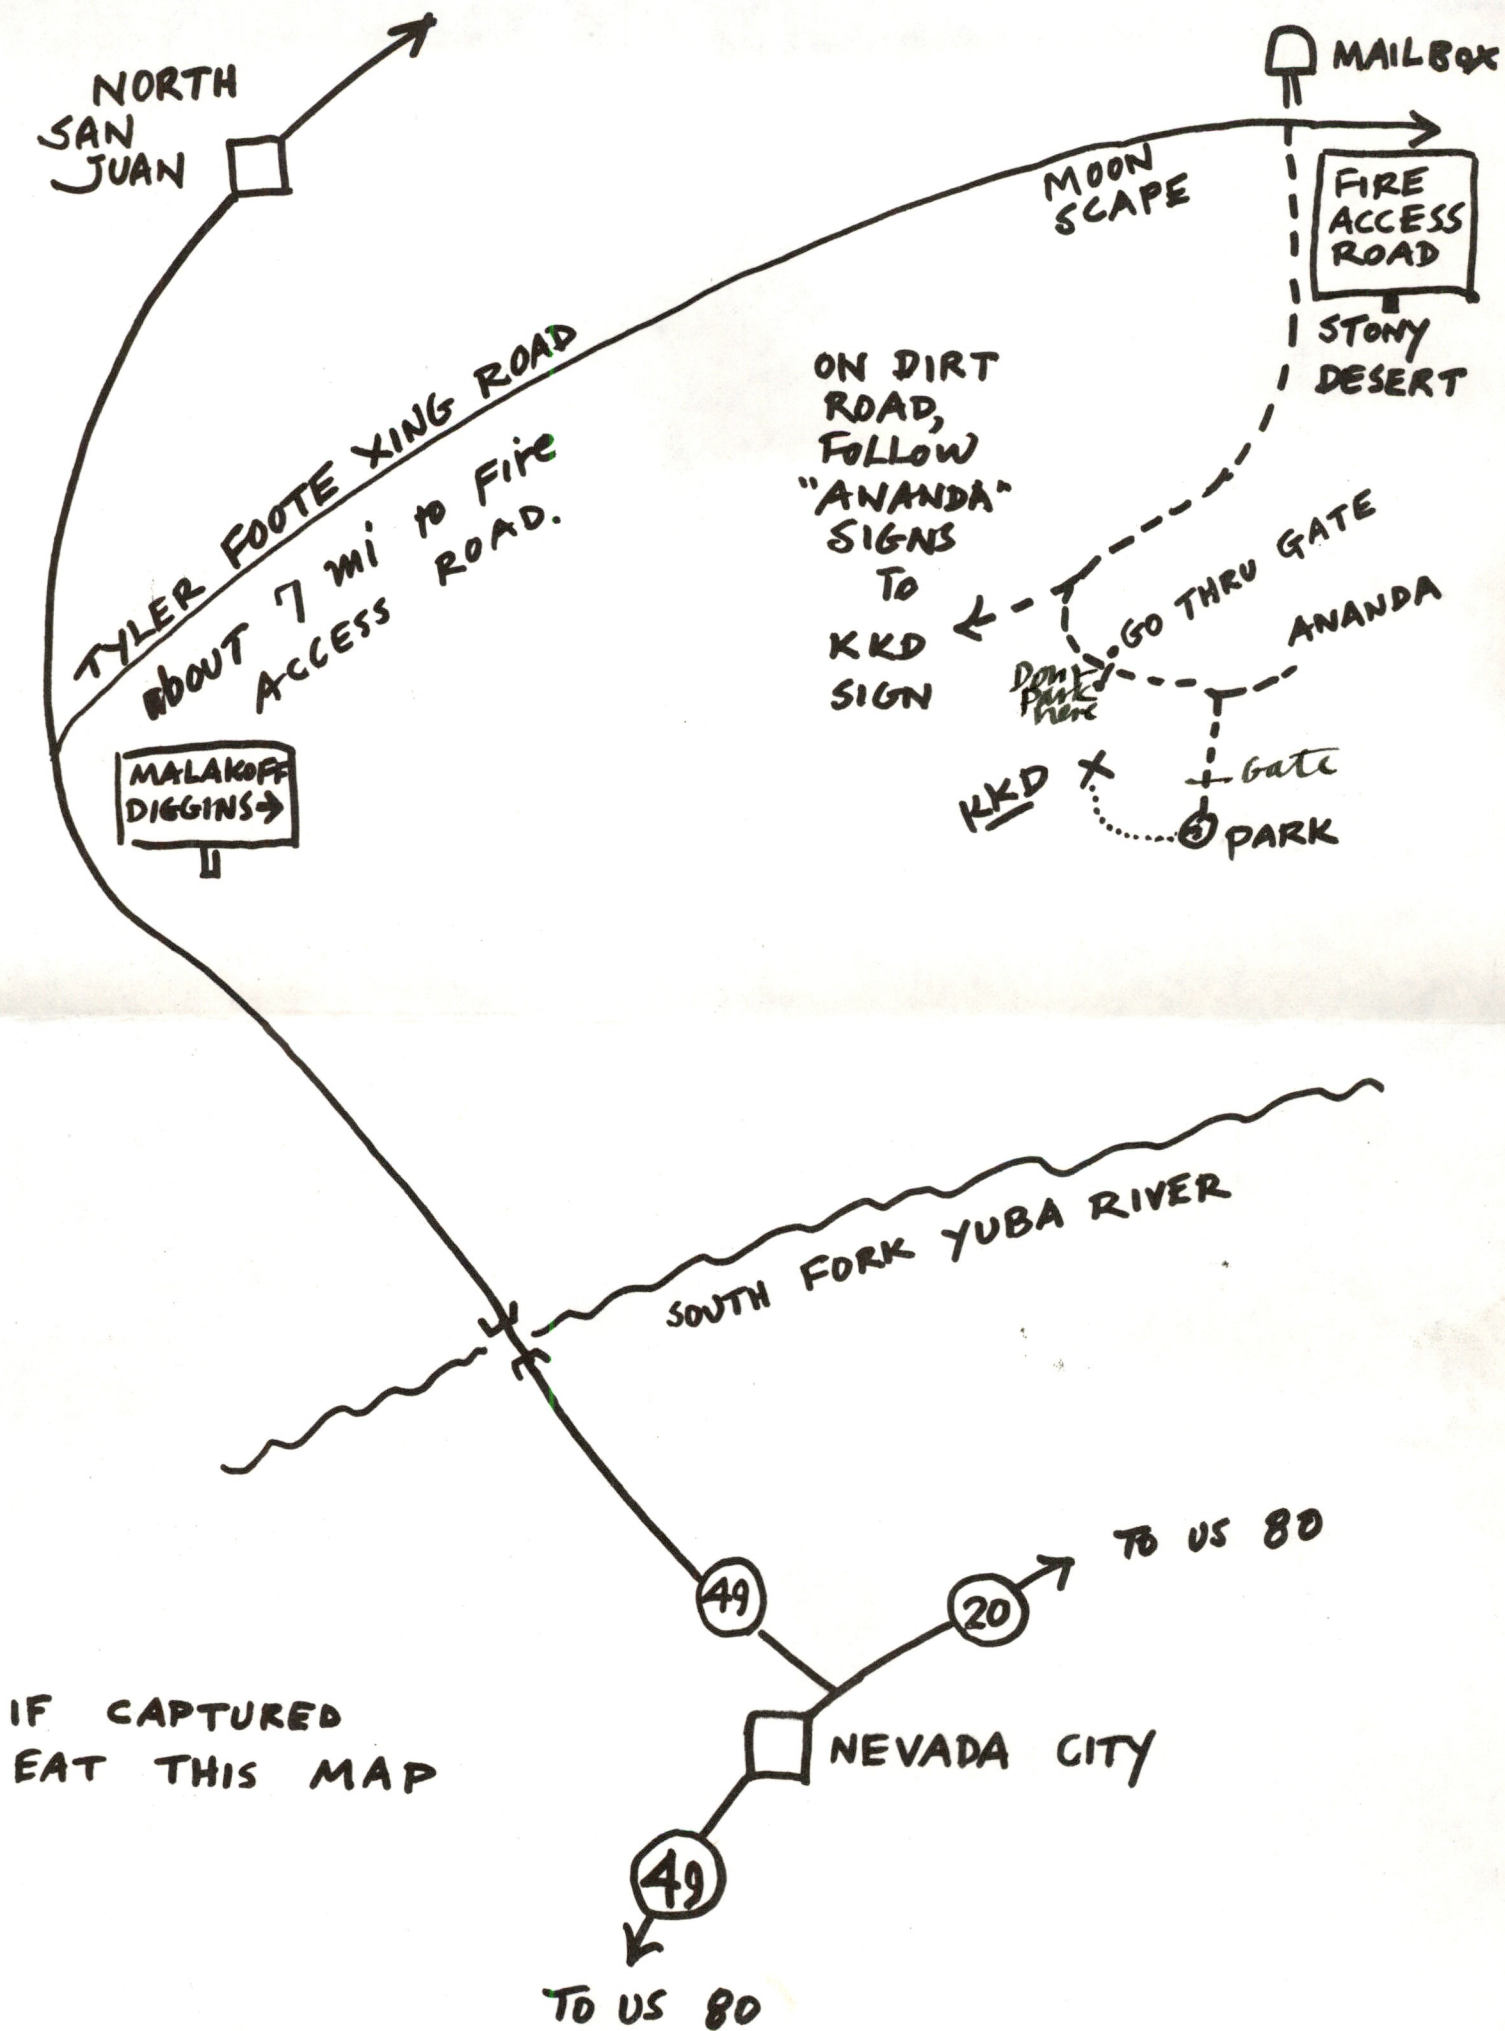 NORTH
SAN
JUAN
MAILBOX
MOON
SCAPE
FIRE
ACCESS
ROAD
STONY
DESERT
TYLER FOOTE XING ROAD
About 7 mi to Fire
ACCESS ROAD.
ON DIRT
ROAD,
FOLLOW
"ANANDA"
SIGNS
TO
KKD
SIGN
GO THRU GATE
ANANDA
Dont
Park
here
Gate
KKD
PARK
MALAKOFF
DIGGINS→
SOUTH FORK YUBA RIVER
49
20
TO US 80
NEVADA CITY
IF CAPTURED
EAT THIS MAP
49
TO US 80